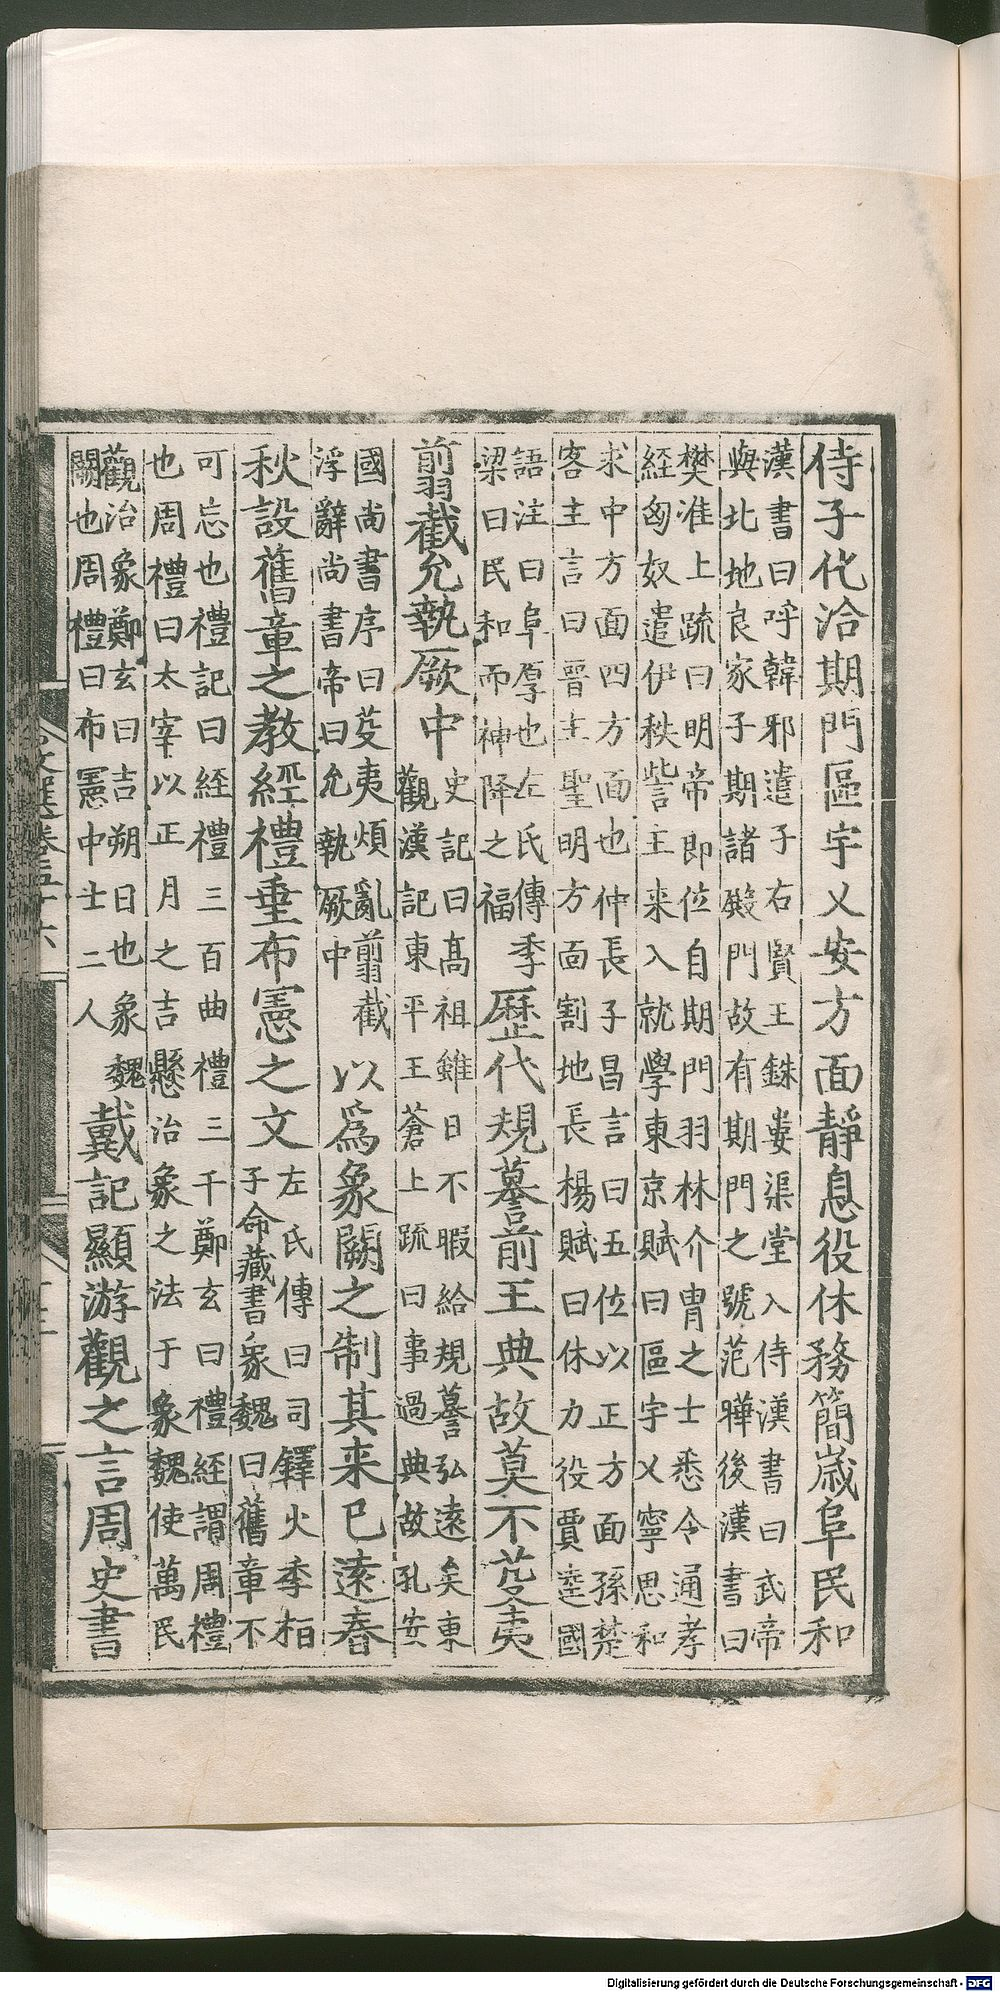 侍子化洽期門區宇乂安方面靜息役休務簡歲阜民和
漢書曰呼韓邪遣子右賢王銖婁渠堂入侍漢書曰武帝
與北地良家子期諸殿門故有期門之號范曄後漢書曰
樊准上疏曰明帝即位自期門羽林介胄之士悉令通孝
經匈奴遣伊秩訾王来入就學東京賦曰區宇乂寧思和
求中方面四方面也仲長子昌言曰五位以正方面孫楚
客主言曰晉主聖明方面割地長楊賦曰休力役賈逵國
語注曰阜厚也左氏傳季
梁曰民和而神降之福
歷代規謩前王典故莫不芟夷
翦截允執厥中
史記曰髙祖雖日不暇給規謩弘遠矣東
觀漢記東平王蒼上疏曰事過典故孔安
國尚書序曰芟夷煩亂翦截
浮辭尚書帝曰允執厥中
以為象闕之制其来已遠春
秋設舊章之教經禮垂布憲之文
左氏傳曰司鐸火季桓
子命藏書象魏曰舊章不
可忘也禮記曰經禮三百曲禮三千鄭玄曰禮經謂周禮
也周禮曰太宰以正月之吉懸治象之法于象魏使萬民
觀治象鄭玄曰吉朔日也象魏
闕也周禮曰布憲中士二人
戴記顯游觀之言周史書
文選卷五十六